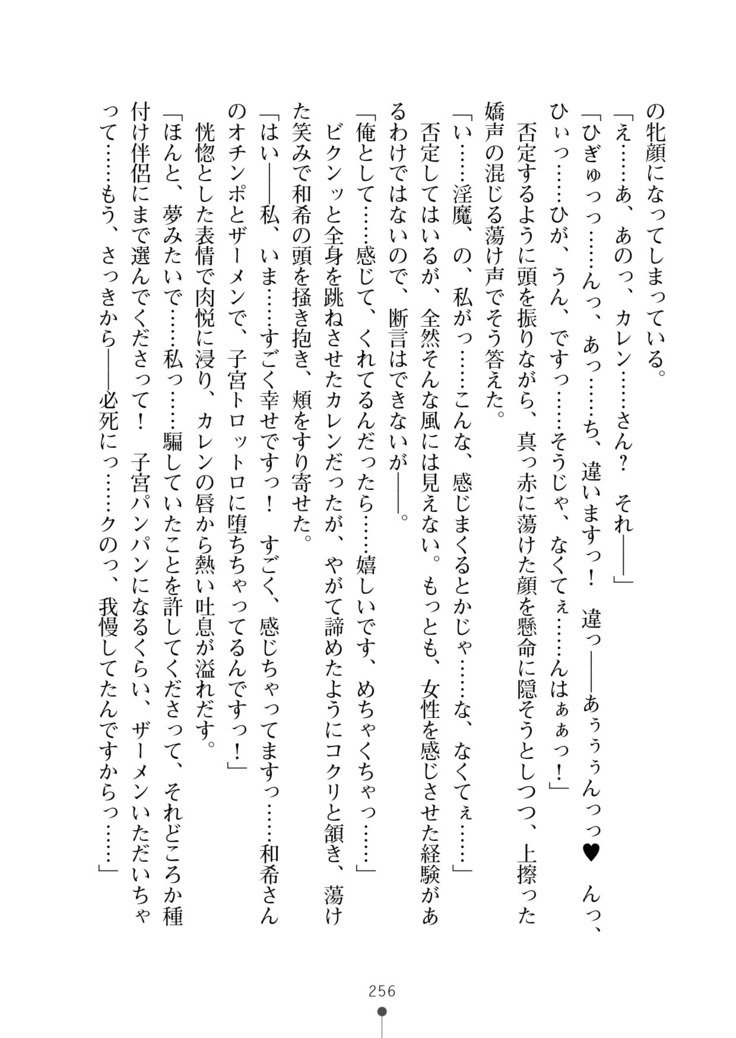 の牝顔になってしまっている。
「え……あ、あのっ、カレン……さん？　それ――」
「ひぎゅっっ……んっ、あっ……ち、違いますっ！　違っ――あぅぅぅんっっ♥　んっ、
ひぃっ……ひが、うん、ですっ……そうじゃ、なくてぇ……んはぁぁっ！」
否定するように頭を振りながら、真っ赤に蕩けた顔を懸命に隠そうとしつつ、上擦った
嬌声の混じる蕩け声でそう答えた。
「い……淫魔、の、私がっ……こんな、感じまくるとかじゃ……な、なくてぇ……」
否定してはいるが、全然そんな風には見えない。もっとも、女性を感じさせた経験があ
るわけではないので、断言はできないが――。
「俺として……感じて、くれてるんだったら……嬉しいです、めちゃくちゃっ……」
ビクンッと全身を跳ねさせたカレンだったが、やがて諦めたようにコクリと頷き、蕩け
た笑みで和希の頭を掻き抱き、頬をすり寄せた。
「はい――私、いま……すごく幸せですっ！　すごく、感じちゃってますっ……和希さん
のオチンポとザーメンで、子宮トロットロに堕ちちゃってるんですっ！」
恍惚とした表情で肉悦に浸り、カレンの唇から熱い吐息が溢れだす。
「ほんと、夢みたいで……私っ……騙していたことを許してくださって、それどころか種
付け伴侶にまで選んでくださって！　子宮パンパンになるくらい、ザーメンいただいちゃ
って……もう、さっきから――必死にっ……クのっ、我慢してたんですからっ……」
256